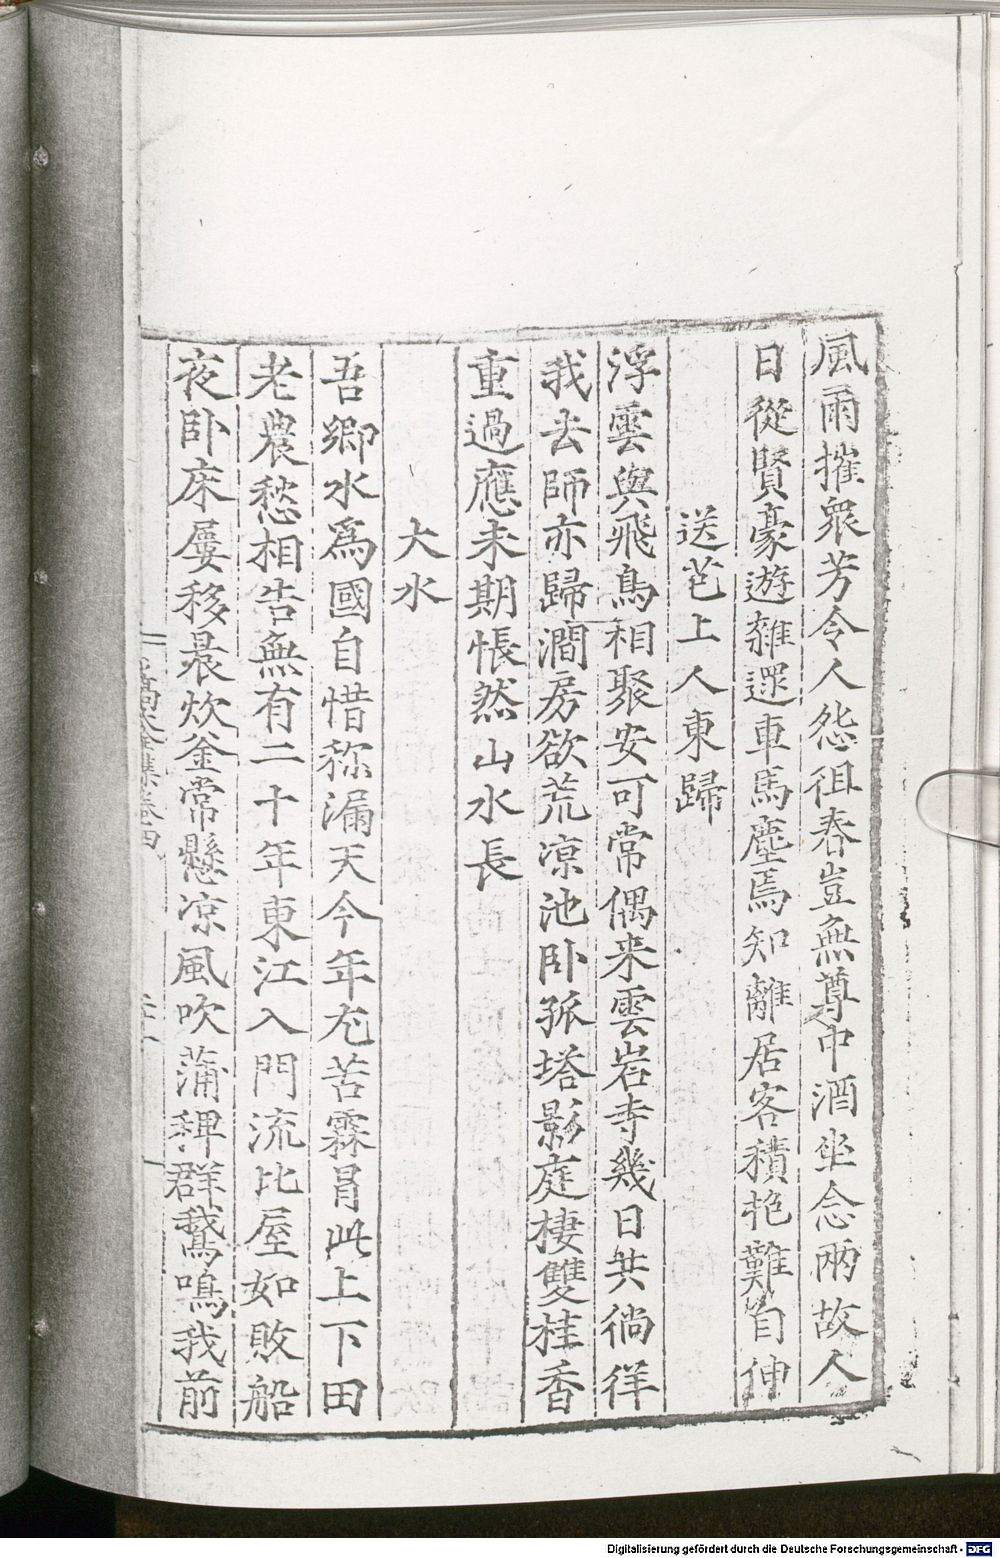 風雨摧衆芳令人怨徂春豈無尊中酒坐念兩故人
日從賢豪遊雜遝車馬塵焉知離居客積抱難自伸
送芑上人東歸
浮雲與飛鳥相聚安可常偶来雲岩寺幾日共徜徉
我去師亦歸澗房欲荒凉池卧孤塔影庭棲雙桂香
重過應未期悵然山水長
大水
吾鄉水爲國自惜称漏天今年尤苦霖胥此上下田
老農愁相告無有二十年東江入門流比屋如敗船
夜卧床屢移晨炊釜常懸凉風吹蒲稗群鵞鳴我前
Digitalisierung gefördert durch die Deutsche Forschungsgemeinschaft - DFG